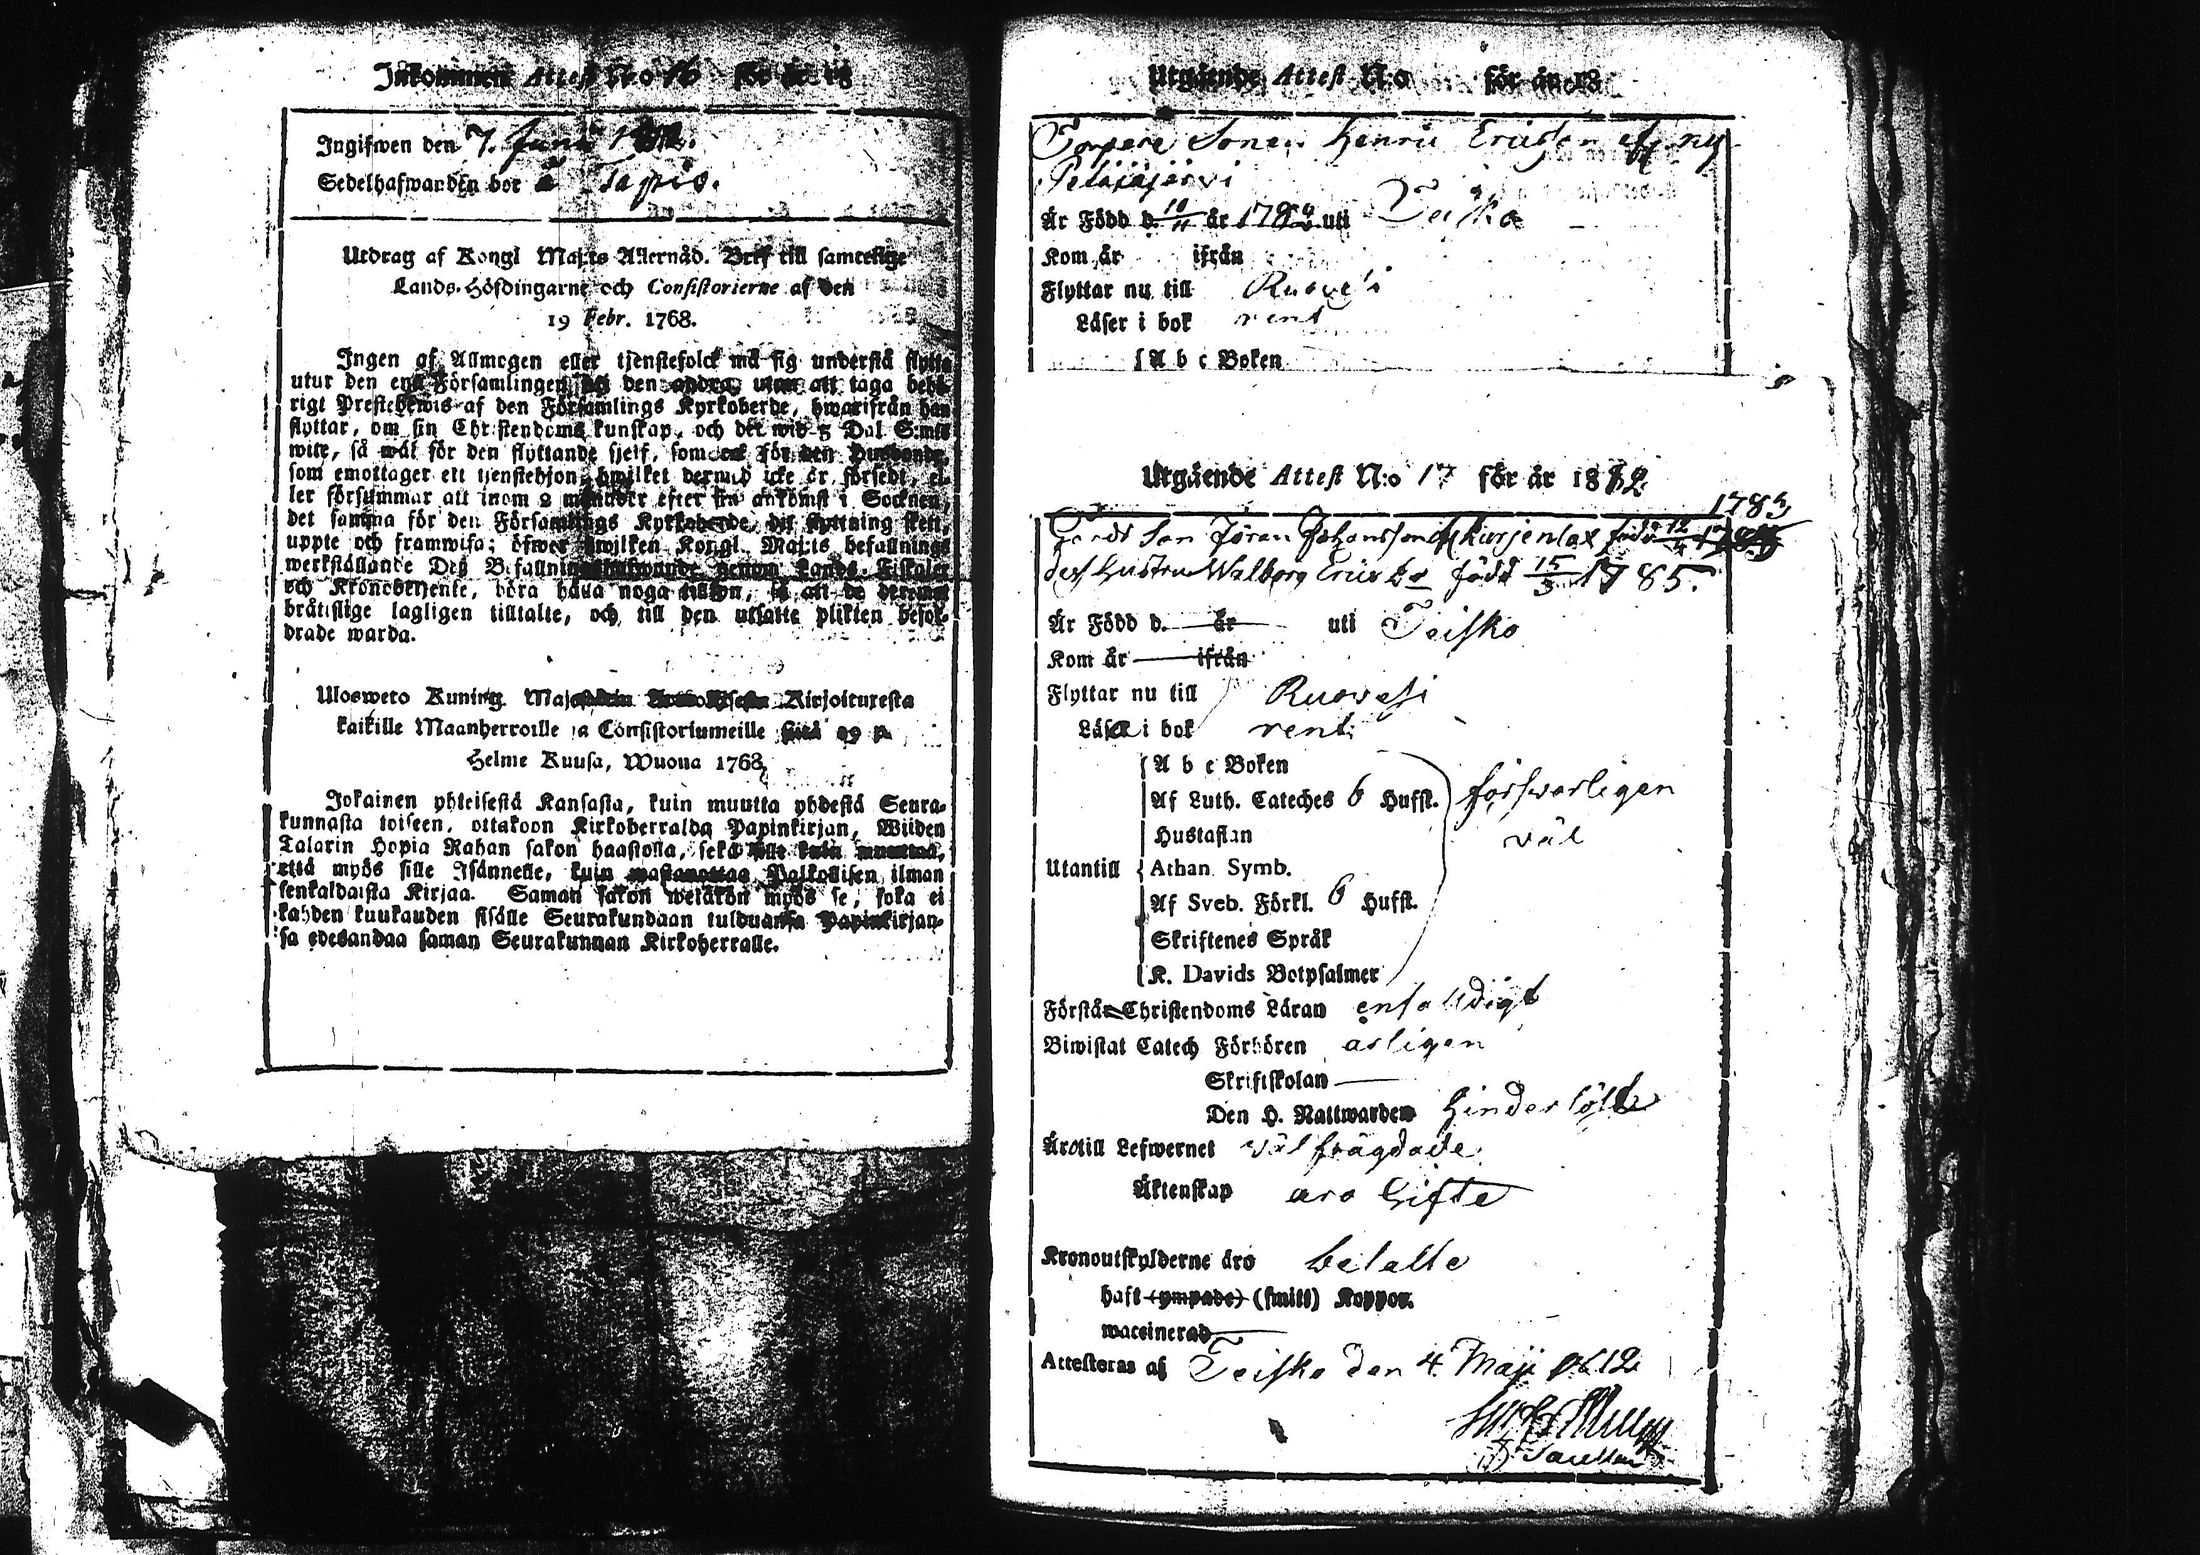 Inkommen Attest N:o 16 för år 18
Ingifwen den 7. Junii
Sedelhafwanden bor å Tapio.
Utdrag af Kongl Maj:ts Allernåd. Bref till samtelige
Lands-Höfdingarne och Consistorierne af den
19 Febr. 1768.
Ingen af Allmogen eller tjenstefolck må sig understå flytta
utur den ena Församlingen den andra, utan att taga behö-
rigt Prestebewis af den Församlings Kyrkoherde, hwarifrån han
flyttar, om sin Christendoms kunskap, och det wid 5 Dal S:mts
wite, så wäl för den flyttande sjelf, som ock för den Husbonde,
som emottager ett tjenstehjon, hwilket dermed icke är försedt, el-
ler försummar att inom 2 månader efter sin ankomst i Socknen,
det samma för den Församlings Kyrkoherde, dit flyttning skett,
uppte och framwisa; öfwer hwilken Kongl. Maj:ts befallnings
werkställande Deß Befallningshafwande genom Lands-Fiskaler
och Kronobetjente, böra hafwa noga tillsyn, så att de deremot
brätslige lagligen tilltalte, och till den utsatte plikten befor-
drade warda.
Ulosweto Kuning. Majestetin Kirjoituxesta
kaikille Maanherroille ja Consistoriumeille siitä 19 p.
Helme Kuusa, Wuonna 1768.
Jokainen yhteisestä Kansasta, kuin muutta yhdestä Seura-
kunnasta toiseen, ottakoon Kirkoherralda Papinkirjan, Wiiden
Talarin Hopia Rahan sakon haastolla, sekä sille kuin muuttaa,
että myös sille Isännelle, kuin wastanottaa Palkollisen ilman
senkaldaista Kirjaa. Saman sakon wetäkön myös se, joka ei
kahden kuukauden sisälle Seurakundaan tulduansa Papinkirjan-
sa edesandaa saman Seurakunnan Kirkoherralle.
Utgående Attest N:o för år 18
Sonen Henric Ericsson af ny
Peläjäjärvi
Är Född d. 10/11 år uti Teisko
Kom år ifrån
Flyttar nu till Ruovesi
Läser i bok rent
A b c Boken
Utgående Attest N:o 17 för år 1812
1783
Son Jöran Johansson af Kurjenlax född 12/4
dess Hustru Walborg Ericsdr född 15/3 1785.
Är Född d. år uti Teisko
Kom år ifrån
Flyttar nu till Ruovesi
Läsa i bok rent
A b c Boken
Af Luth. Cateches 6 Hufst. försvarligen
Hustaflan väl
Utantill Athan. Symb.
Af Sveb. Förkl. 6 Hufst.
Skriftenes Språk
K. Davids Botpsalmer
Förstår Christendoms Läran enfalldigt
Biwistat Catech Förhören årligen
Skriftskolan
Den H. Nattwarden hinderlöst
Äro till Lefwernet väl frägdade
Äktenskap äro Gifte
Kronoutskylderne äro betalte
haft (ympade) (smitt) Koppor.
waccinerad
Attesteras af Teisko den 4. Maji 1812